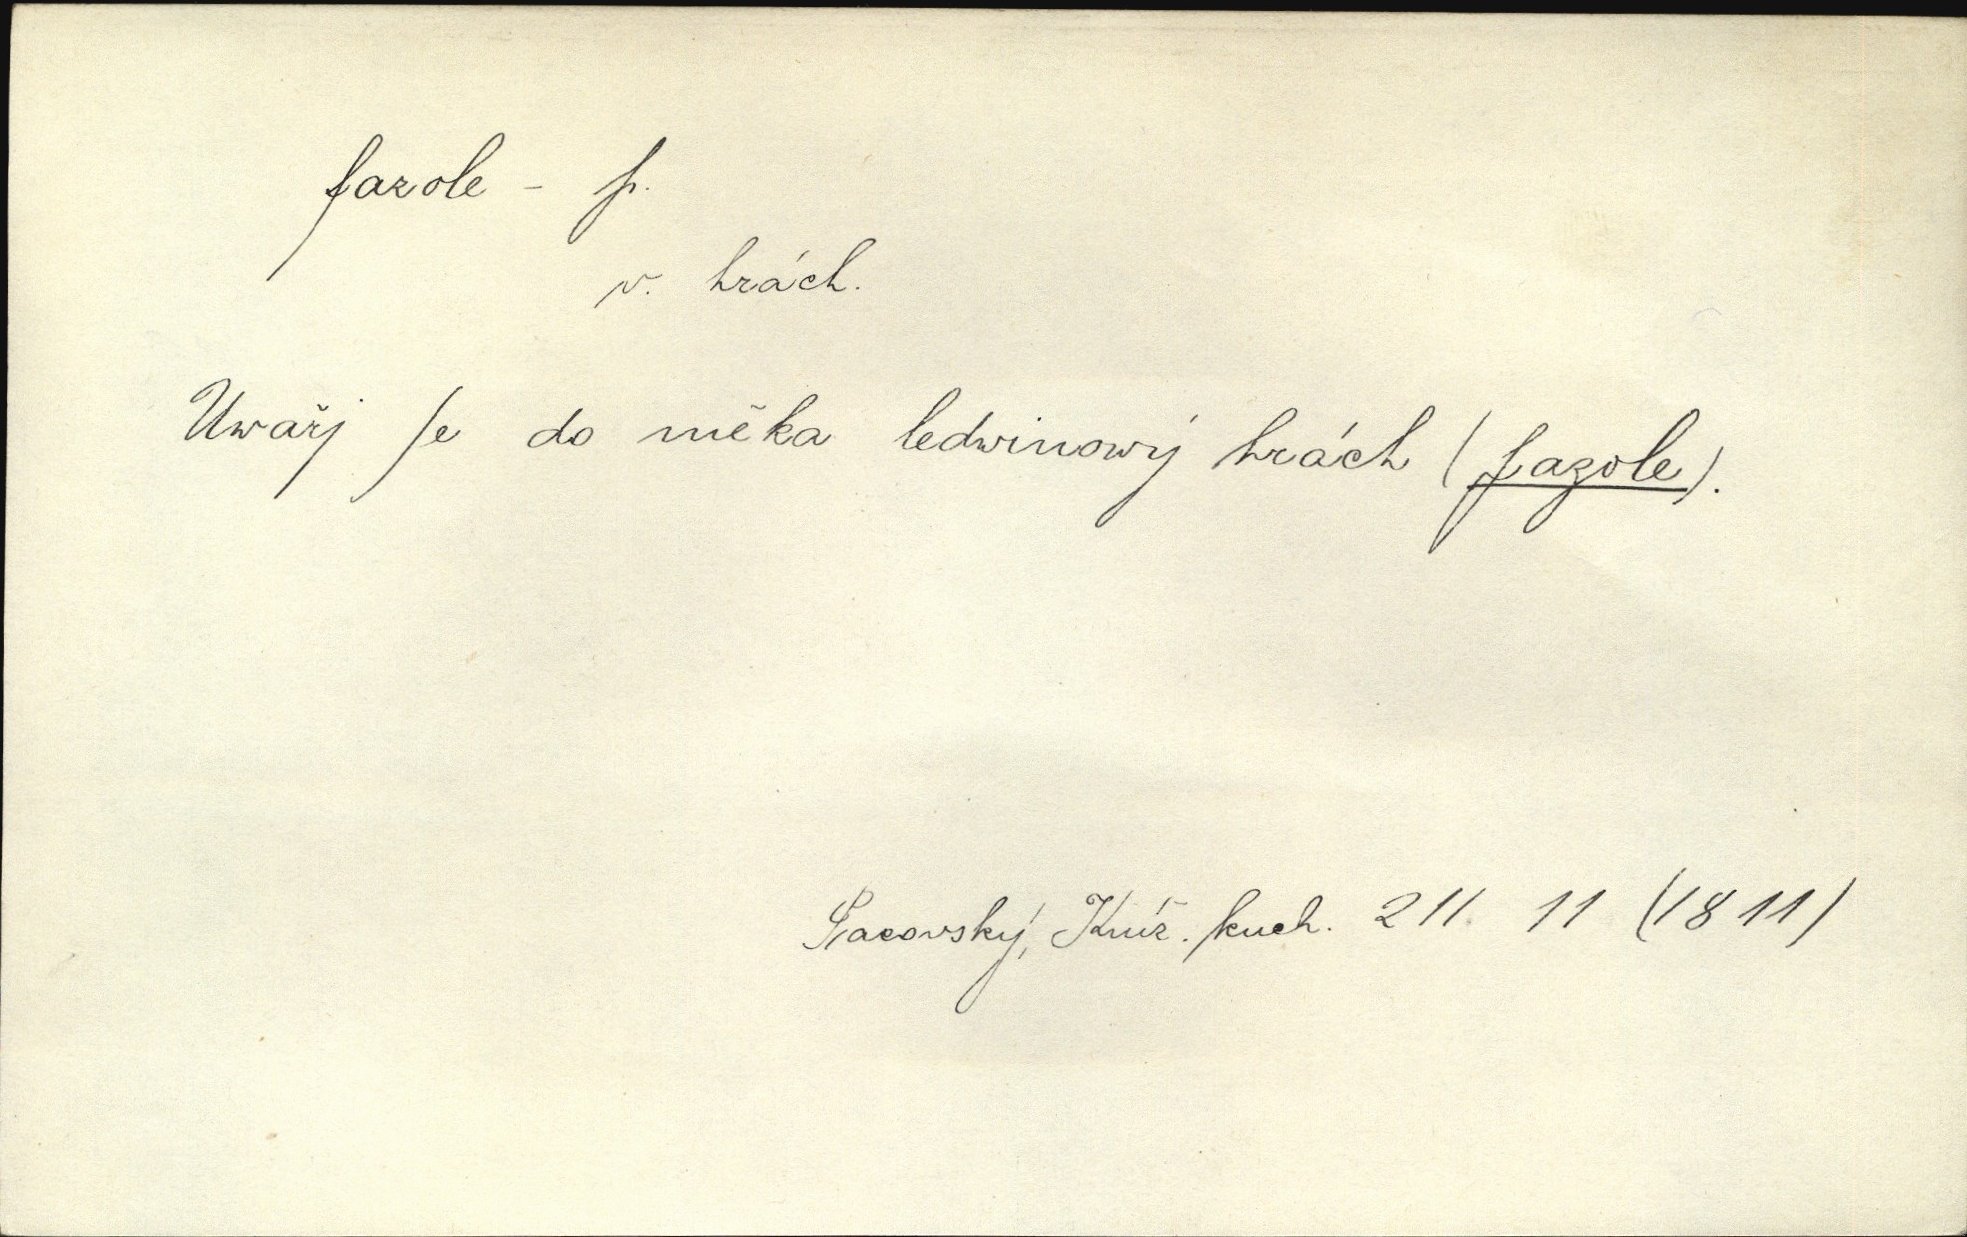 fazole – f.
v. hrách.
Uwařj ſe do měka ledwinowý hrách (fazole).
Pacovský, Kniž. kuch. 211 11 (1811)